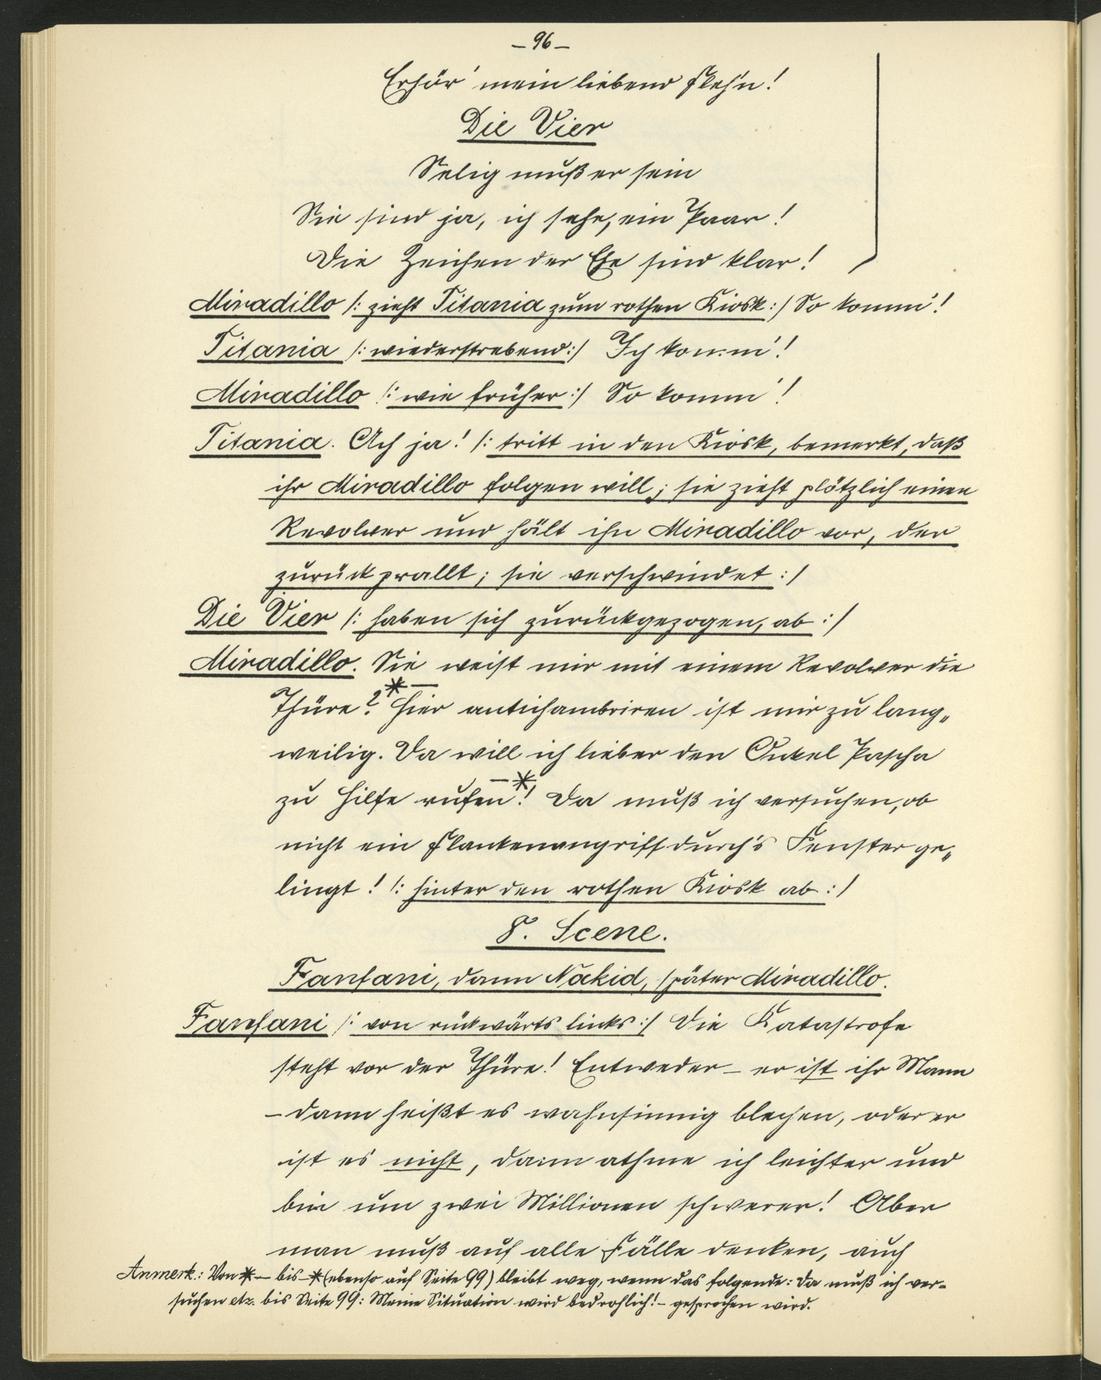 – 96 –
Erhör' mein liebend Fleh'n!
Die Vier
Selig muß er sein
Sie sind ja, ich sehe, ein Paar!
Die Zeichen der Ehe sind klar!
Miradillo /: zieht Titania zum rothen Kiosk :/ So komm'!
Titania /: wiederstrebend :/ Ich komm'!
Miradillo /: wie früher :/ So komm'!
Titania. Ach ja! /: tritt in den Kiosk, bemerkt, daß
ihr Miradillo folgen will; sie zieht plötzlich einen
Revolver und hält ihn Miradillo vor, der
zurückprallt; sie verschwindet :/
Die Vier /: haben sich zurückgezogen, ab :/
Miradillo. Sie weist mir mit einem Revolver die
Thüre? *– Hier antichambriren ist mir zu lang„
weilig. Da will ich lieber den Onkel Pascha
zu Hilfe rufen –*! Da muß ich versuchen, ob
nicht ein Flankenangriff durch's Fenster ge„
lingt! /: hinter den rothen Kiosk ab :/
8. Scene.
Fanfani, dann Nakid, später Miradillo.
Fanfani /: von rückwärts links :/ Die Katastrofe
steht vor der Thüre! Entweder – er ist ihr Mann
– dann heißt es wahnsinnig blechen, oder er
ist es nicht, dann athme ich leichter und
bin um zwei Millionen schwerer! Aber
man muß auf alle Fälle denken, auch
Anmerk.: Von *– bis –* (ebenso auf Seite 99) bleibt weg, wenn das folgende: Da muß ich ver-
suchen etc. bis Seite 99: Meine Situation wird bedrohlich! – gesprochen wird.